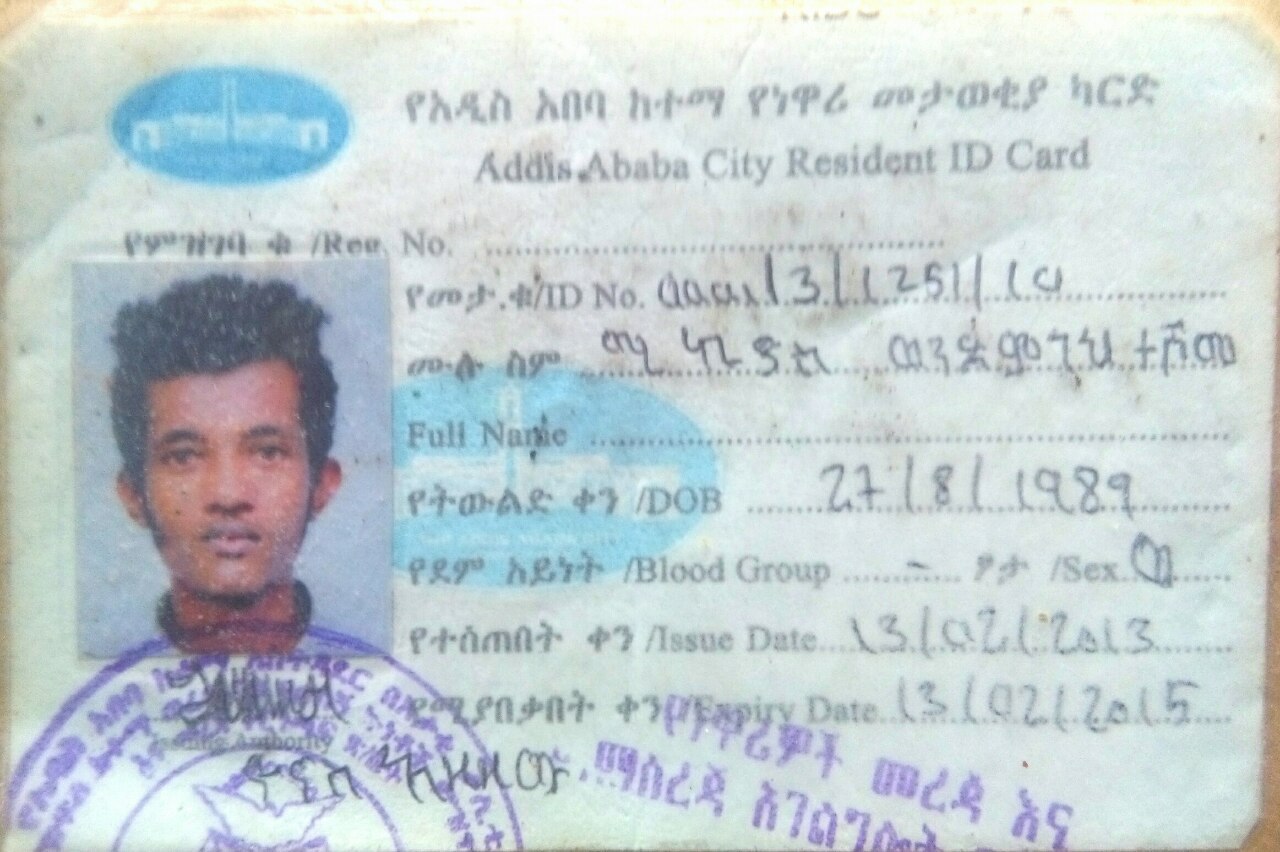 የአዲስ አበባ ከተማ የነዋሪ መታወቂያ ካርድ
Addis Ababa City Resident ID Card
የምዝገባ ቁ /Reg. No. ....................
የመታ.ቁ/ID No. /3/1251/10
ሙሉ ስም ወንድምገዛሁ ተሾመ
Full Name ....................
የትውልድ ቀን /DOB 27/8/1989
የደም አይነት /Blood Group - ፆታ /Sex ወ
የተሰጠበት ቀን /Issue Date 13/02/2013
የሚያበቃበት ቀን /Expiry Date 13/02/2015
Issuing Authority
የነዋሪዎች መረጃ እና
ማስረጃ አገልግሎት